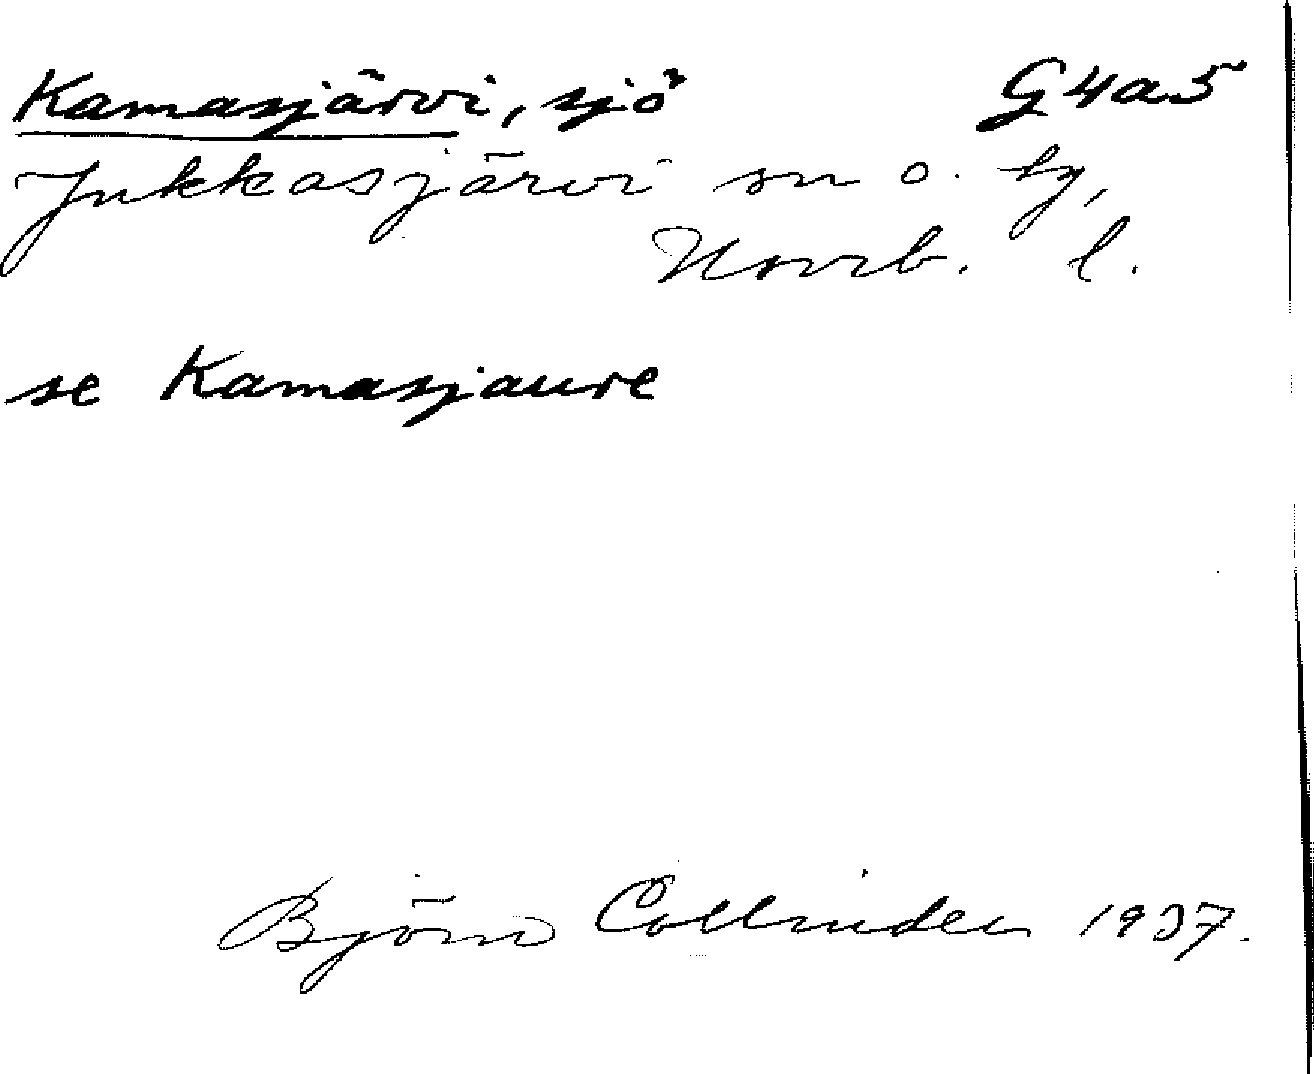 Kamasjärvi, sjö G4a5
Jukkasjärvi sn o. tg,
Norrb. l.
se Kamasjaure
Björn Collinder 1937.